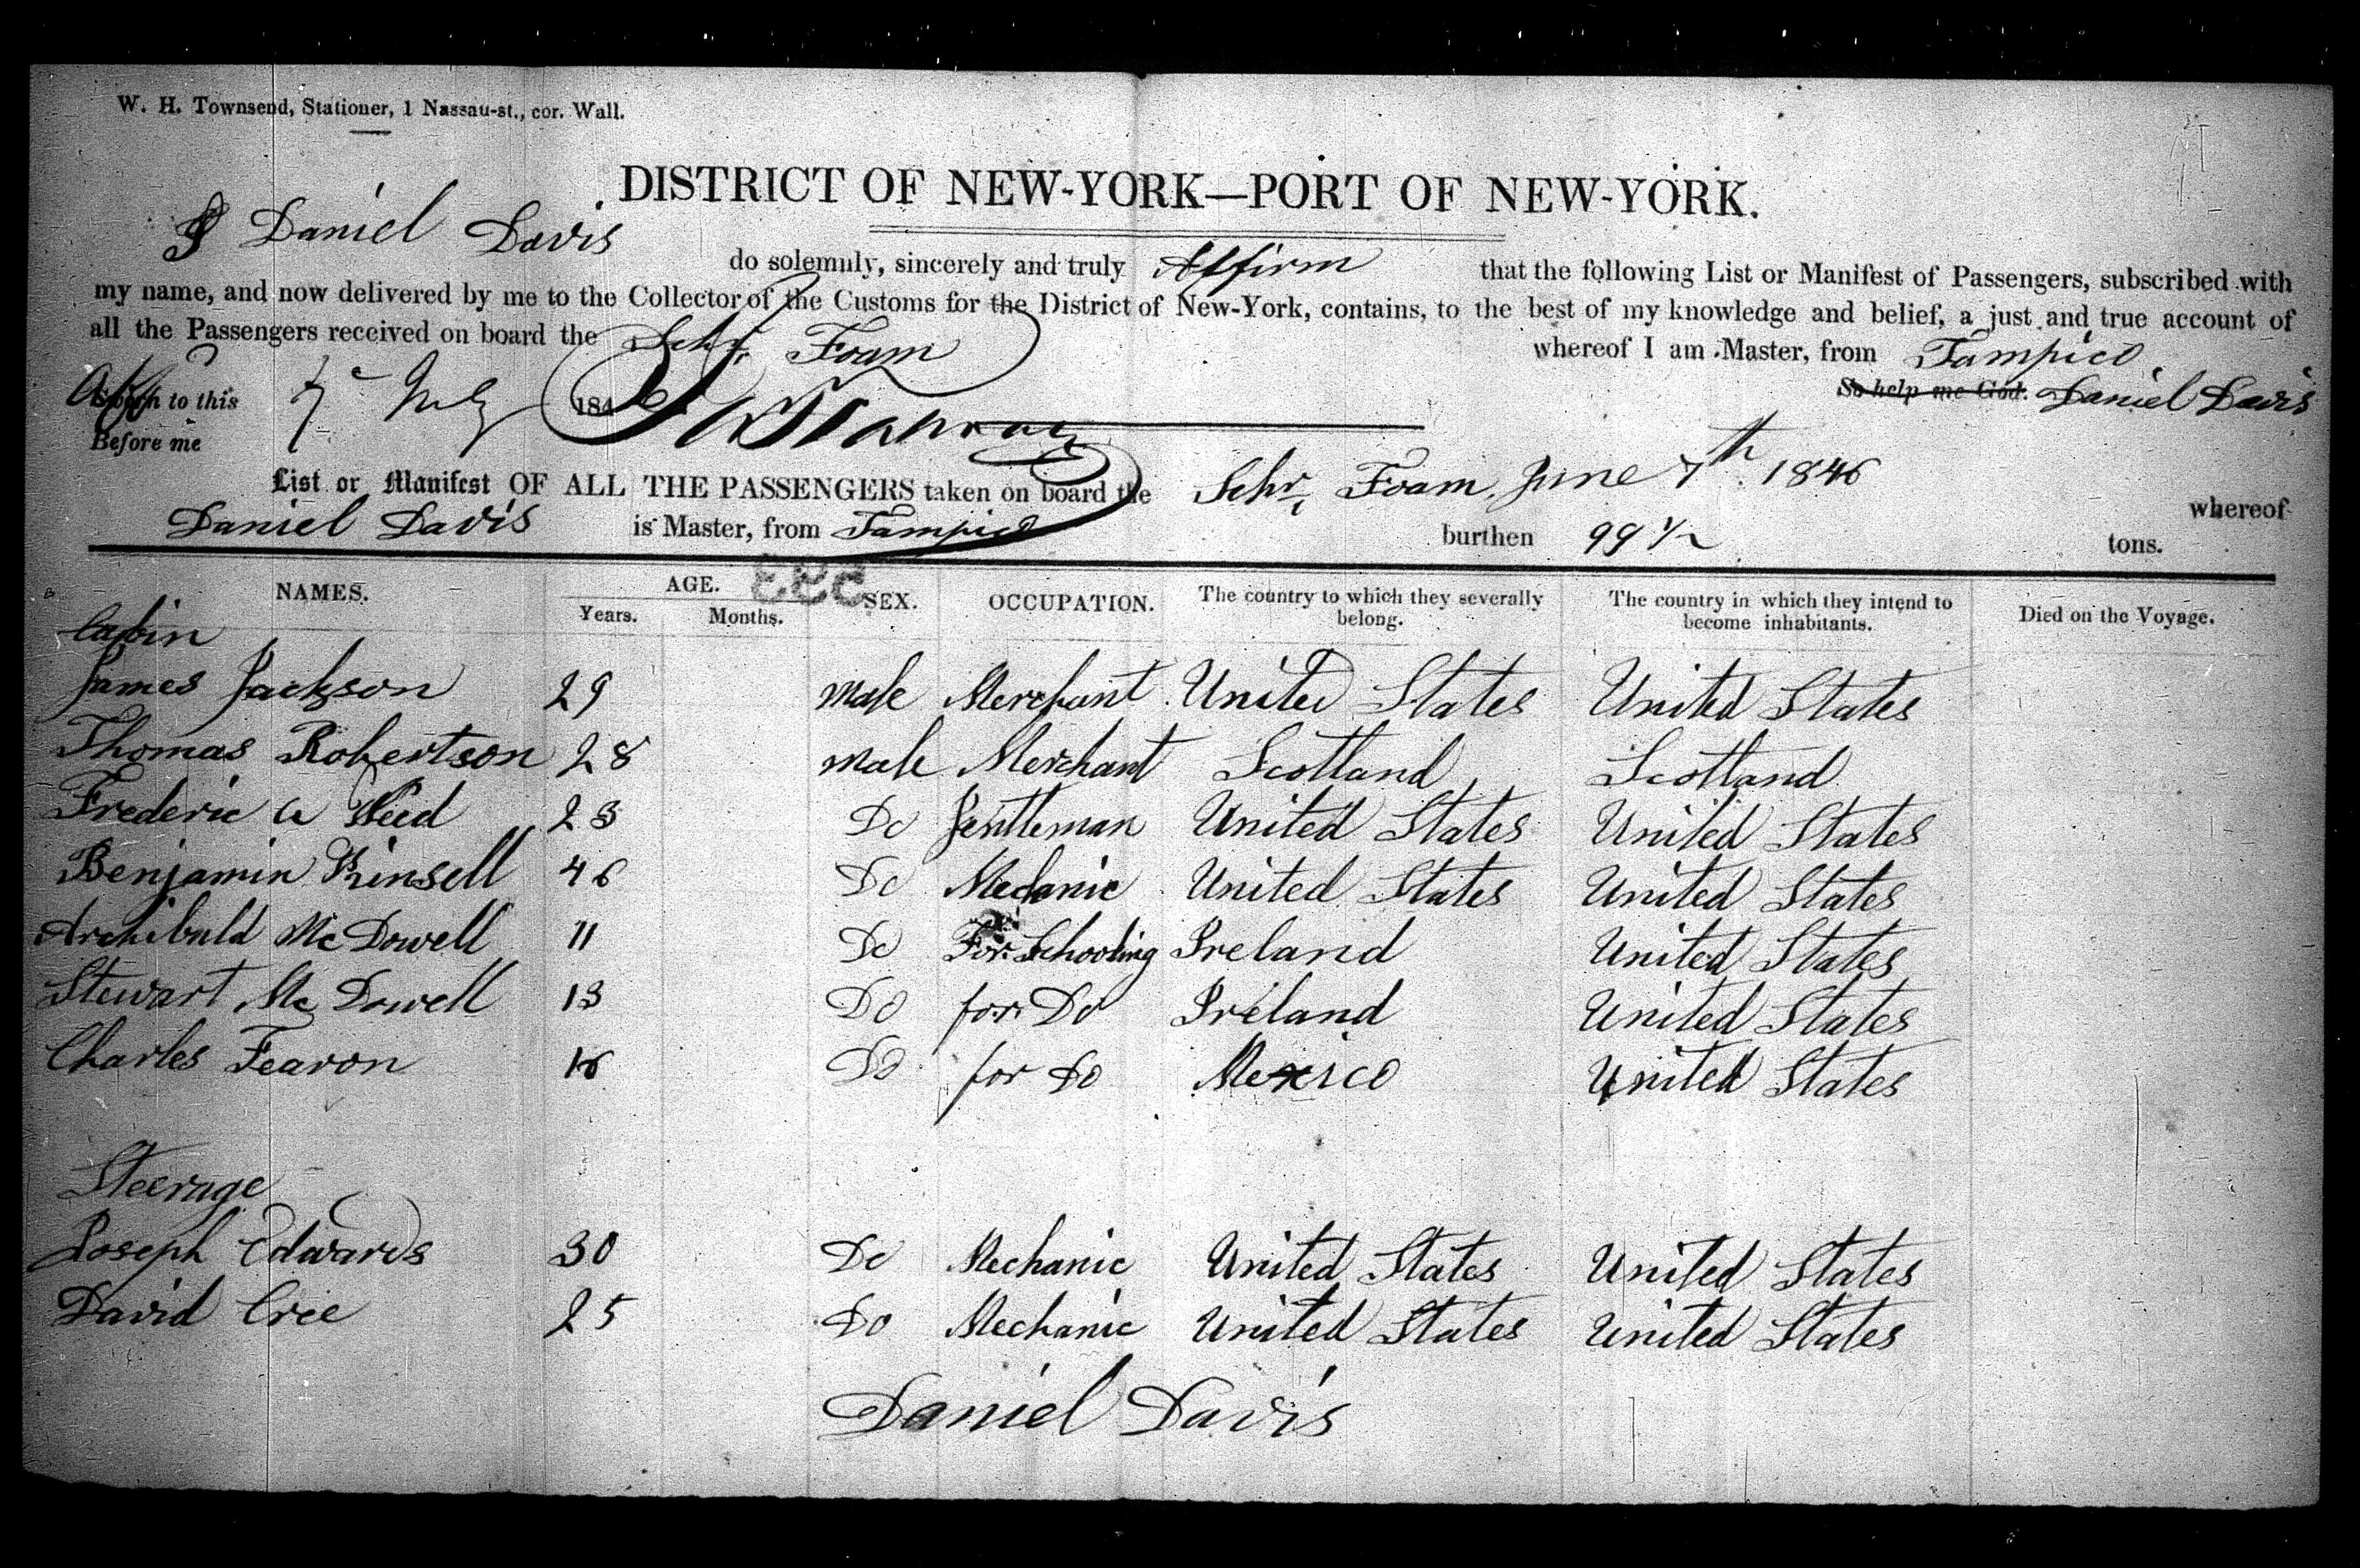 W. H. Townsend, Stationer, 1 Nassau-st., cor. Wall.
DISTRICT OF NEW-YORK—PORT OF NEW-YORK.
I Daniel Davis do solemnly, sincerely and truly Affirm that the following List or Manifest of Passengers, subscribed with
my name, and now delivered by me to the Collector of the Customs for the District of New-York, contains, to the best of my knowledge and belief, a just and true account of
all the Passengers received on board the Schr. Foam whereof I am Master, from Tampico
So help me God. Daniel Davis
to this 7 July 1846
Before me
List or Manifest OF ALL THE PASSENGERS taken on board the Schr. Foam, June 7th 1846 whereof
Daniel Davis is Master, from Tampico burthen 99 1/2 tons.
NAMES. AGE. SEX. OCCUPATION. The country to which they severally belong. The country in which they intend to become inhabitants. Died on the Voyage.
Years. Months.
Cabin
James Jackson 29 male Merchant United States United States
Thomas Robertson 28 male Merchant Scotland Scotland
Frederic a Weed 23 Do Gentleman United States United States
Benjamin Kinsell 46 Do Mechanic United States United States
Archibald McDowell 11 Do For Schooling Ireland United States
Stewart McDowell 13 Do for Do Ireland United States
Charles Fearon 16 Do for Do Mexico United States
Steerage
Joseph Edwards 30 Do Mechanic United States United States
David Cree 25 Do Mechanic United States United States
Daniel Davis